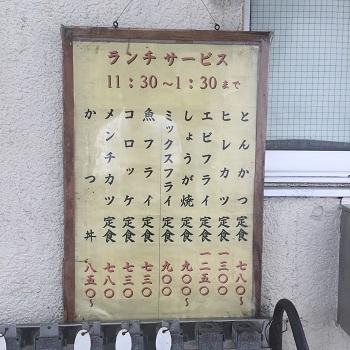 ランチサービス
11:30〜1:30まで
とんかつ定食 七八〇〜
ヒレカツ定食 一三〇〇
エビフライ定食 一二五〇
しょうが焼定食 九〇〇〜
ミックスフライ定食 九〇〇
魚フライ定食 七三〇
コロッケ定食 七三〇
メンチカツ定食 七八〇
かつ丼 八五〇〜